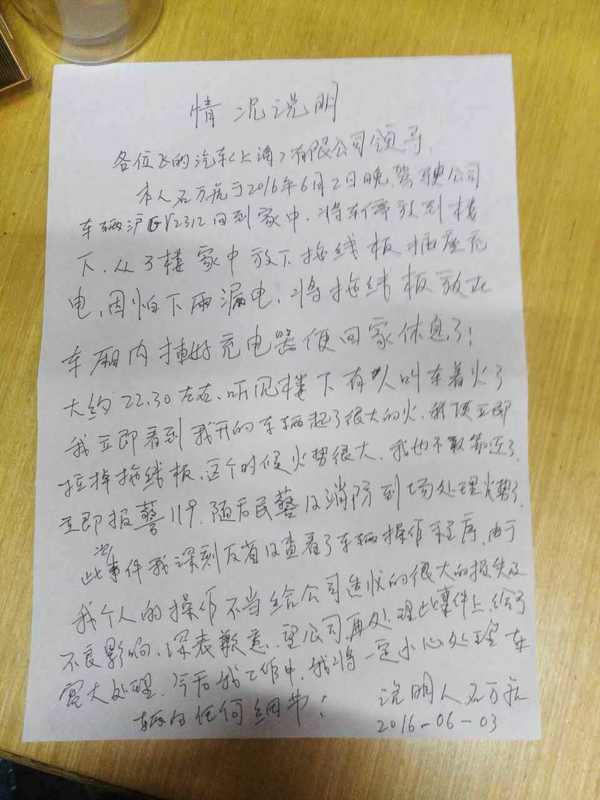 情况说明
各位飞的汽车(上海)有限公司领导.
本人石万宽于2016年6月2日晚驾驶公司
车辆沪GV2312回到家中.将车停放到楼
下.从3楼家中放下拖线板插座充
电,因怕下雨漏电.将拖线板放在
车厢内插好充电器便回家休息了!
大约22.30左右.听见楼下有人叫车着火了
我立即看到我开的车辆起了很大的火.我立即
拉掉拖线板.这个时候火势很大.我也不敢靠近了
立即报警119.随后民警及消防到场处理火势了.
此事件我深刻反省及查看了车辆操作程序.由于
我个人的操作不当给公司造成的很大的损失及
不良影响.深表歉意.望公司再处理此事件上给予
宽大处理.今后我工作中.我将一定小心处理车
辆的任何细节!
说明人石万
2016-06-03